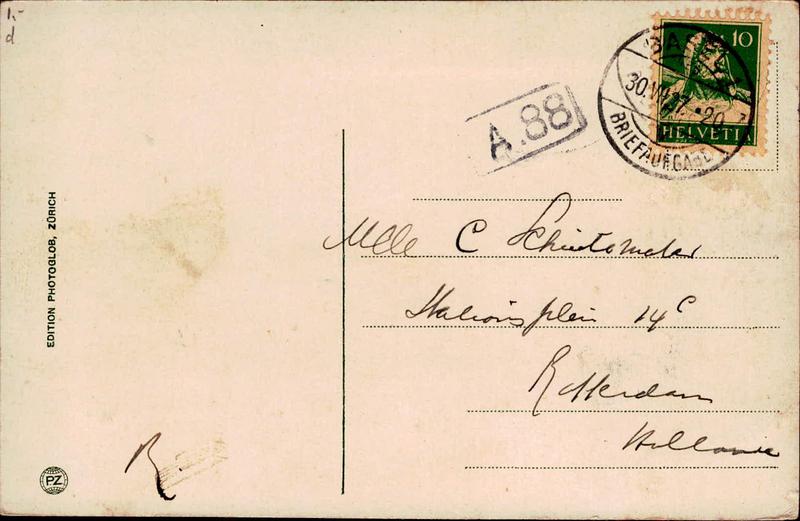 1.-
d
10
HELVETIA
BASEL 1
30.VII.27.-20
BRIEFAUFGABE
A.88
Mlle C
Stationsplein 14c
Rotterdam
Hollande
EDITION PHOTOGLOB, ZÜRICH
PZ
R